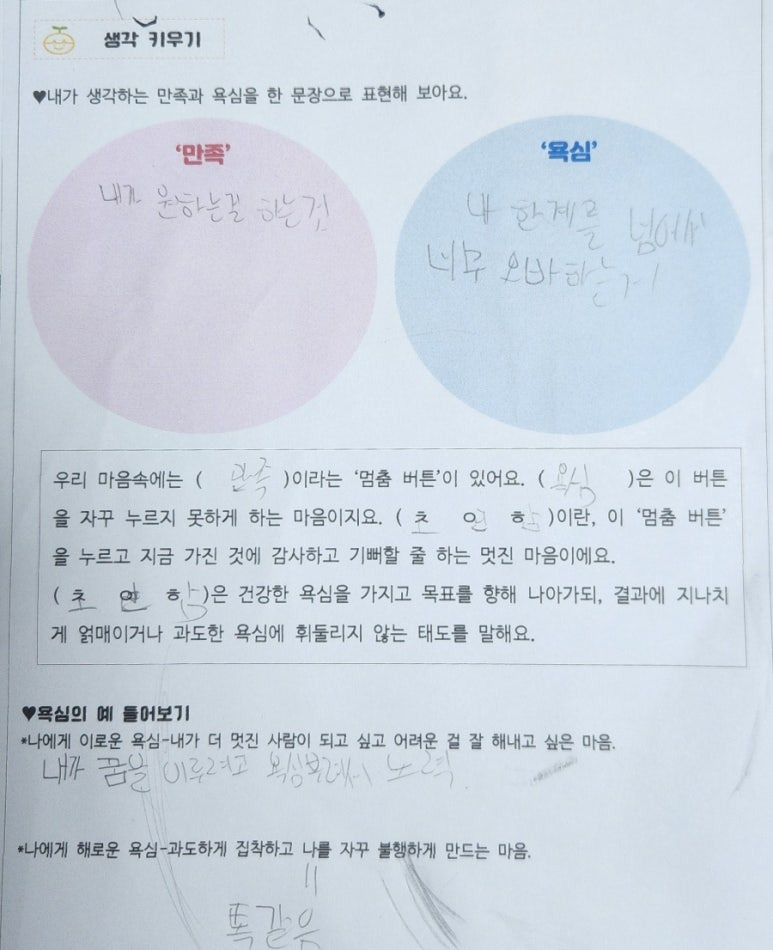 생각 키우기
♥내가 생각하는 만족과 욕심을 한 문장으로 표현해 보아요.
'만족'
내가 원하는걸 하는것
'욕심'
내 한계를 넘에서
너무 오바하는거
우리 마음속에는 ( 만족 )이라는 '멈춤 버튼'이 있어요. ( 욕심 )은 이 버튼
을 자꾸 누르지 못하게 하는 마음이지요. ( 초 연 함 )이란, 이 '멈춤 버튼'
을 누르고 지금 가진 것에 감사하고 기뻐할 줄 하는 멋진 마음이에요.
( 초 연 함 )은 건강한 욕심을 가지고 목표를 향해 나아가되, 결과에 지나치
게 얽매이거나 과도한 욕심에 휘둘리지 않는 태도를 말해요.
♥욕심의 예 들어보기
*나에게 이로운 욕심-내가 더 멋진 사람이 되고 싶고 어려운 걸 잘 해내고 싶은 마음.
내가 꿈을 이루려고 욕심부려서 노력.
*나에게 해로운 욕심-과도하게 집착하고 나를 자꾸 불행하게 만드는 마음.
=
똑같음